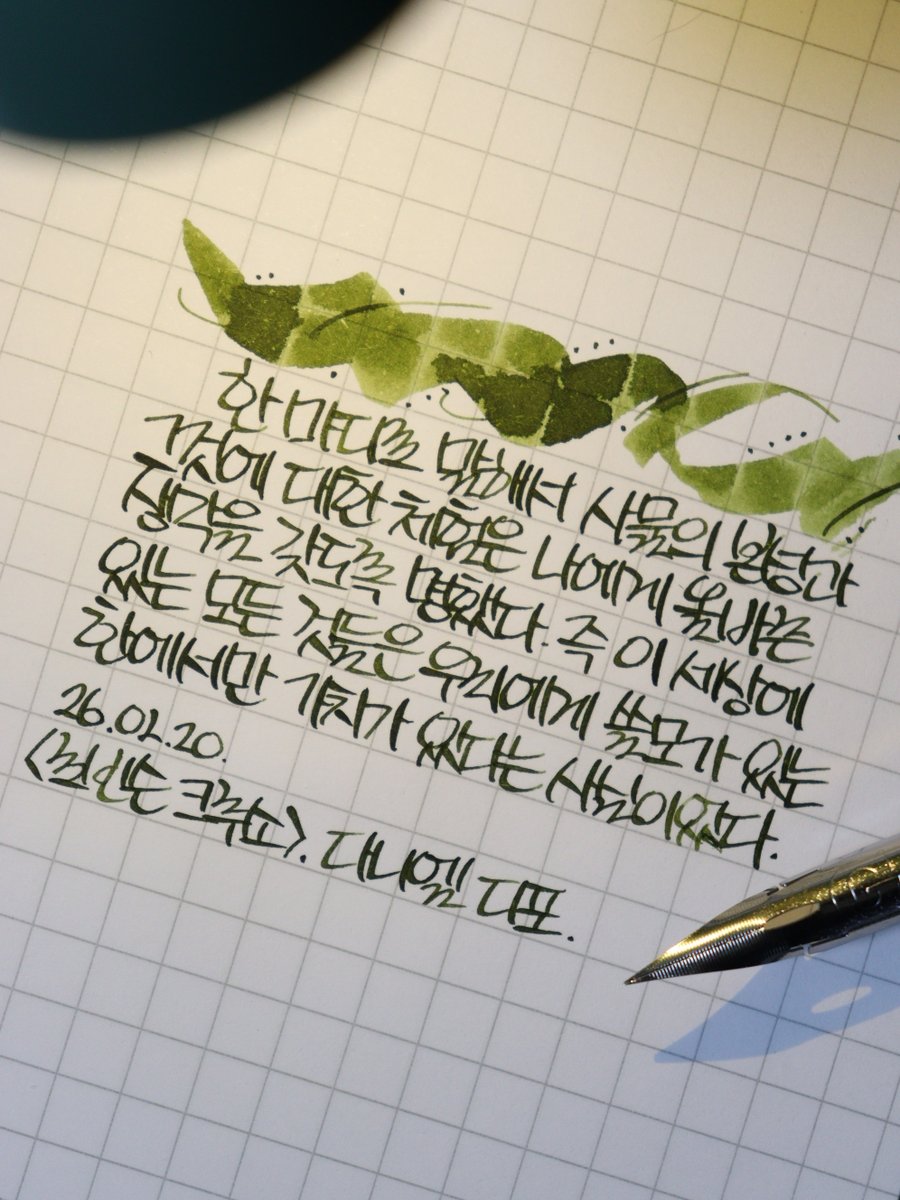 한 마디로 말해서 사물의 본성과
거것에 대한 체험은 나에게 올바른
생각을 갖도록 명했다. 즉 이 세상에
있는 모든 것들은 우리에게 쓸모가 있는
한에서만 가치가 있다는 사실이었다.
26.02.20.
<로빈슨 크루소>. 다니엘 디포.